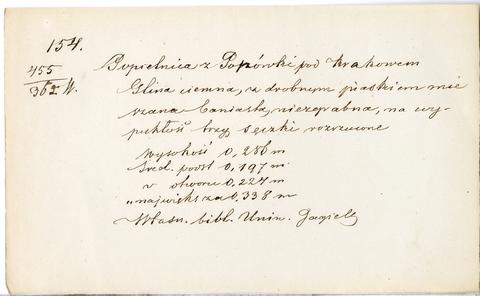 154.
455
362 W.
Popielnica z Popówki pod Krakowem
Glina ciemna, z drobnym piaskiem mie
szana baniasta, niezgrabna, na wy-
pukłość trzy sęczki rozrzucone
Wysokość 0,286 m
Śred. podst 0,197 m
v otworu 0,227 m
„ największa 0,338 m
Własn. bibl. Uniw. Jagiell